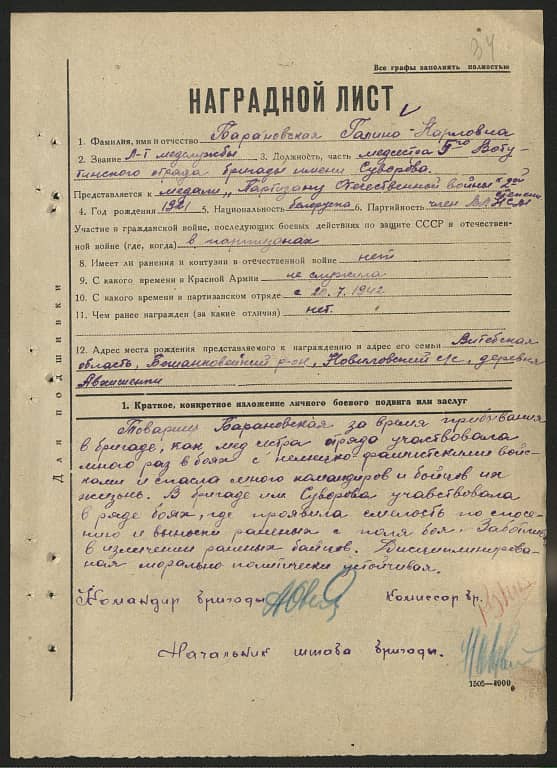 34
Все графы заполнять полностью
НАГРАДНОЙ ЛИСТ
1. Фамилия, имя и отчество Барановская Галина Карловна
2. Звание Л-т медслужбы 3. Должность, часть медсестра Вату-
тинского отряда бригады имени Суворова.
Представляется к медали „Партизану Отечественной войны" 2ой степени
4. Год рождения 1921 5. Национальность белоруска 6. Партийность член ВЛКСМ
Участие в гражданской войне, последующих боевых действиях по защите СССР и отечествен-
ной войне (где, когда) в партизанах
8. Имеет ли ранения и контузии в отечественной войне нет
9. С какого времени в Красной Армии не служила
10. С какого времени в партизанском отряде с 20.7.1942
11. Чем ранее награжден (за какие отличия) нет.
12. Адрес места рождения представляемого к награждению и адрес его семьи Витебская
область, р-он, с/с, деревня
Для подшивки
1. Краткое, конкретное изложение личного боевого подвига или заслуг
Товарищ Барановская за время прибывания
в бригаде, как мед систра отряда участвовала
много раз в боях с немецко-фашистскими вой-
ками и спасла много командиров и бойцов их
жизню. В бригаде им Суворова учавствовала
в ряде боях, где проявила смелость по спосе-
нию и выноски раненых с поля боя. Заботлива
в излечении раненых байцов. Дисциплинирова-
ная морально политически устойчивая.
Командир бригады Комиссар бр.
Начальник штаба бригады.
1505—4000